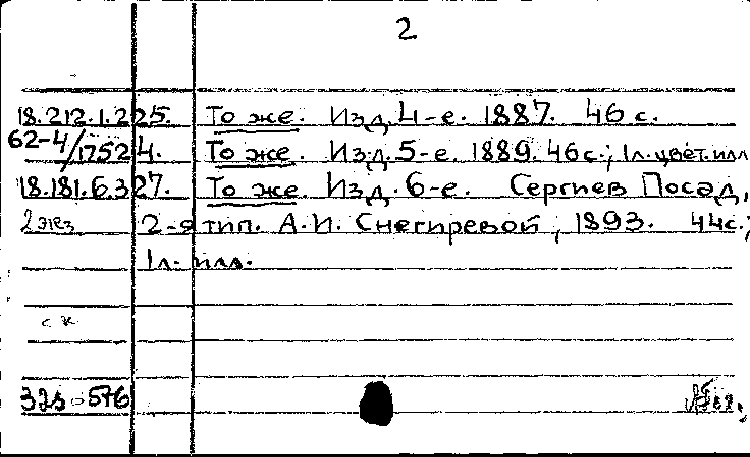 2
18.212.1.225. То же. Изд. 4-е. 1887. 46 с.
62-4/17524. То же. Изд. 5-е. 1889. 46с.; 1л. цвет. илл
18.181.6.327. То же. Изд. 6-е. Сергиев Посад,
2 экз 2-я тип. А.И. Снегиревой, 1893. 44с.;
1л. илл.
с к
32з-576